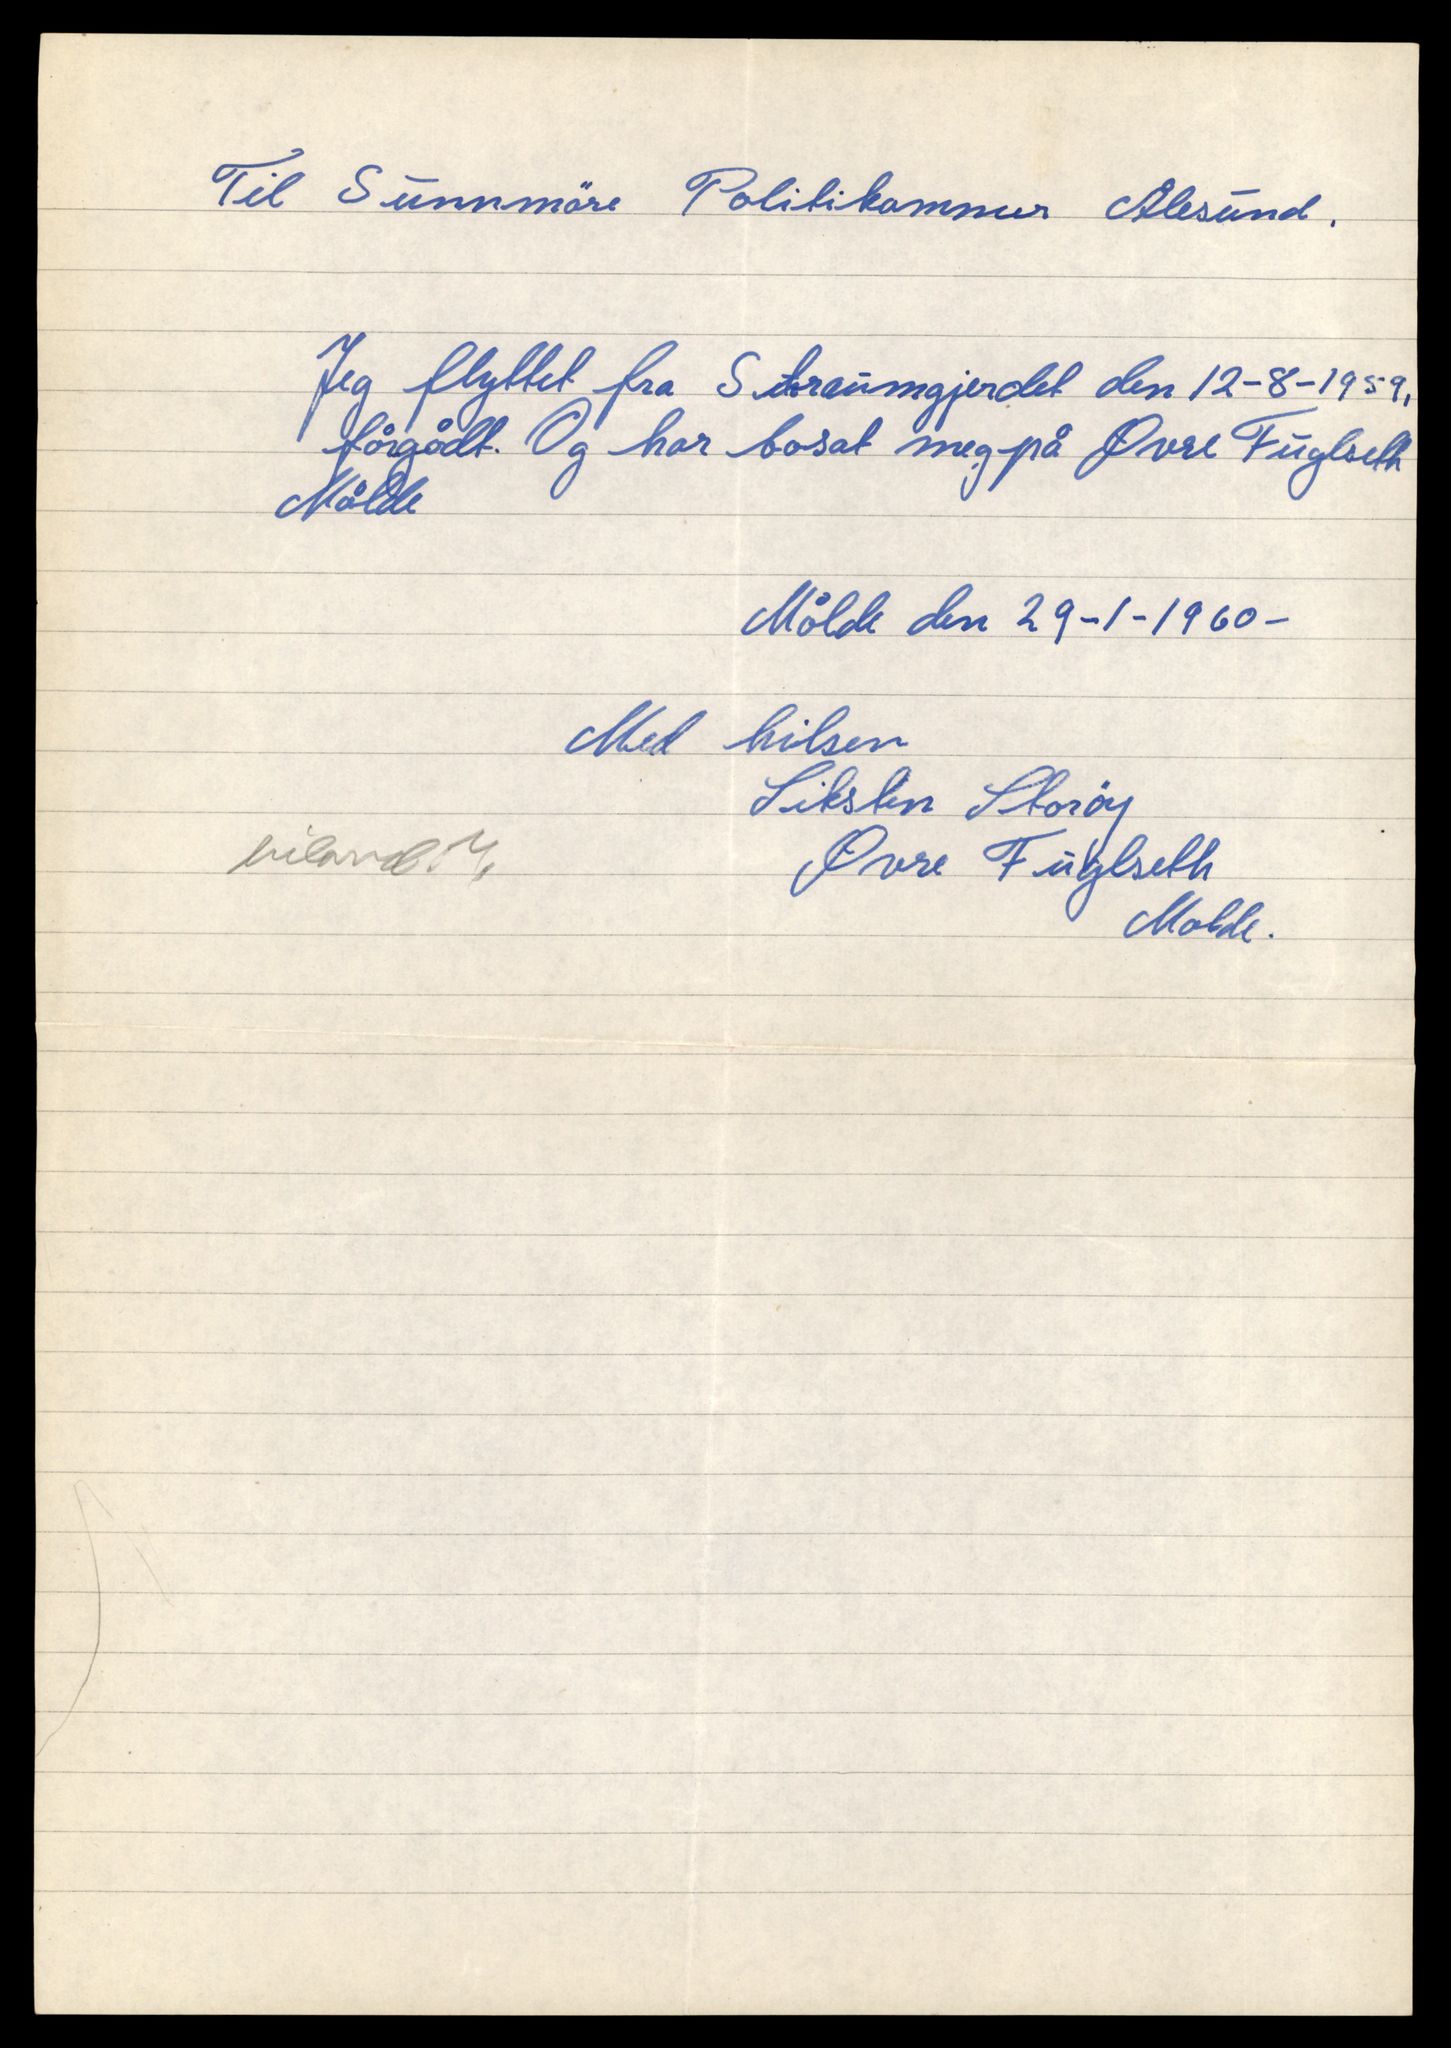 Til Sunnmöre Politikammer Alesund.
Jeg flyttet fra Straumgjerdet den 12-8-1959,
førgødt. Og har bosat meg på Øvre Fuglseth
Mólde
Mólde den 29-1-1960-
Med hilsen
Siksten Storöy
Øvre Fuglseth
Molde.